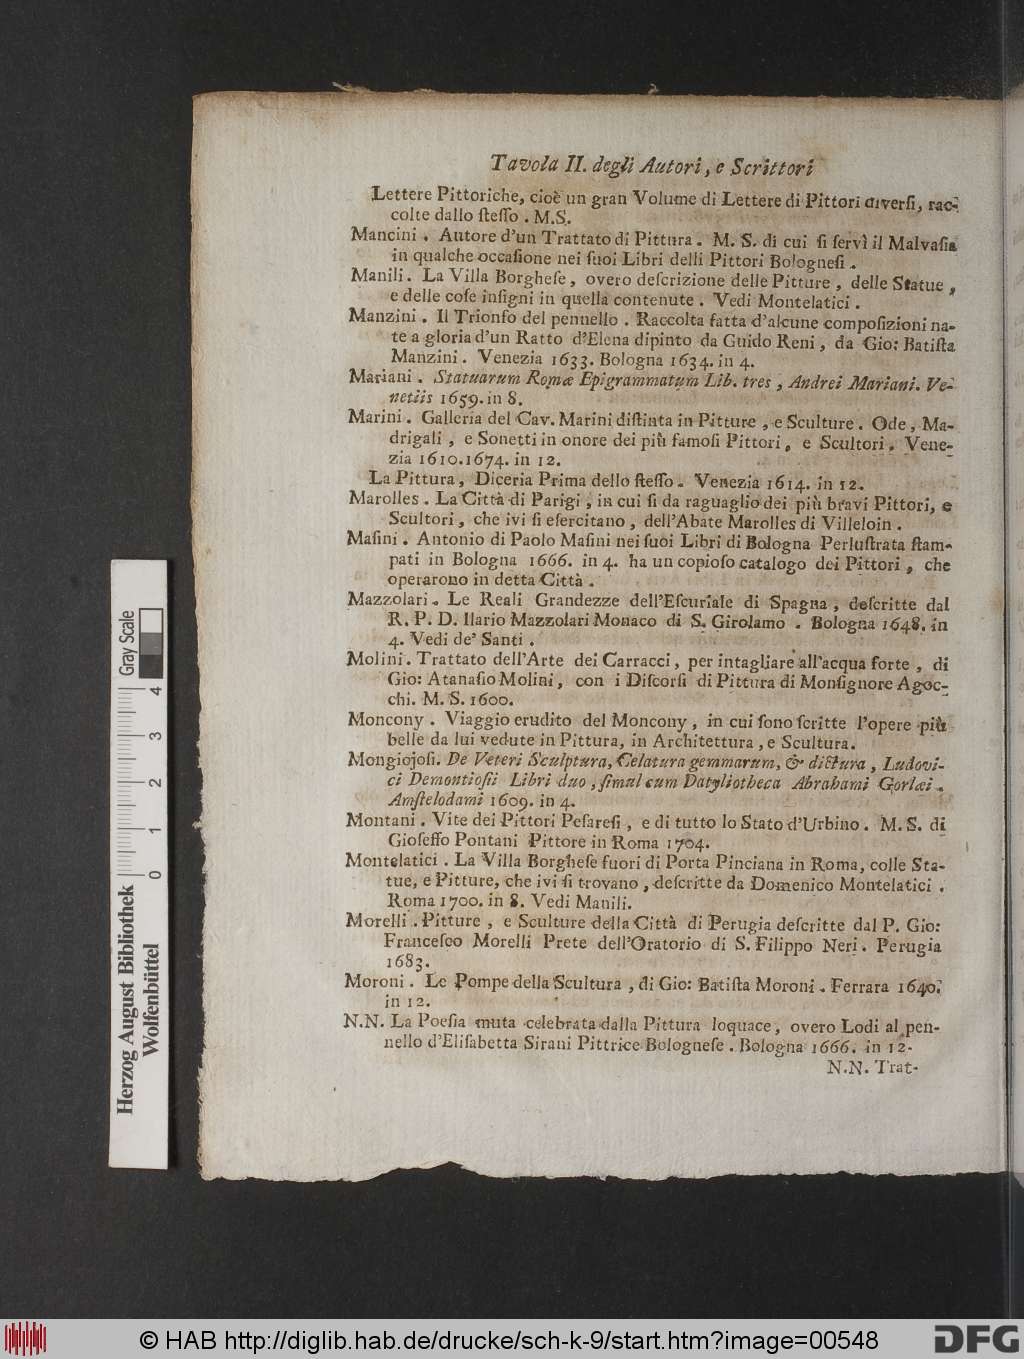 Tavola II. degli Autori, e Scrittori
Lettere Pittoriche, cioè un gran Volume di Lettere di Pittori diverſi, rac-
colte dallo ſteſſo. M.S.
Mancini. Autore d'un Trattato di Pittura. M. S. di cui ſi ſervì il Malvaſia
in qualche occaſione nei ſuoi Libri delli Pittori Bologneſi.
Manili. La Villa Borgheſe, overo deſcrizione delle Pitture, delle Statue,
e delle coſe inſigni in quella contenute. Vedi Montelatici.
Manzini. Il Trionfo del pennello. Raccolta fatta d'alcune compoſizioni na-
te a gloria d'un Ratto d'Elena dipinto da Guido Reni, da Gio: Batiſta
Manzini. Venezia 1633. Bologna 1634. in 4.
Mariani. Statuarum Romæ Epigrammatum Lib. tres, Andrei Mariani. Ve-
netiis 1659. in 8.
Marini. Galleria del Cav. Marini diſtinta in Pitture, e Sculture. Ode, Ma-
drigali, e Sonetti in onore dei più famoſi Pittori, e Scultori. Vene-
zia 1610. 1674. in 12.
La Pittura, Diceria Prima dello ſteſſo. Venezia 1614. in 12.
Marolles. La Città di Parigi, in cui ſi da raguaglio dei più bravi Pittori, e
Scultori, che ivi ſi eſercitano, dell'Abate Marolles di Villeloin.
Maſini. Antonio di Paolo Maſini nei ſuoi Libri di Bologna Perluſtrata ſtam-
pati in Bologna 1666. in 4. ha un copioſo catalogo dei Pittori, che
operarono in detta Città.
Mazzolari. Le Reali Grandezze dell'Eſcuriale di Spagna, deſcritte dal
R. P. D. Ilario Mazzolari Monaco di S. Girolamo. Bologna 1648. in
4. Vedi de' Santi.
Molini. Trattato dell'Arte dei Carracci, per intagliare all'acqua forte, di
Gio: Atanaſio Molini, con i Diſcorſi di Pittura di Monſignore Agoc-
chi. M. S. 1600.
Moncony. Viaggio erudito del Moncony, in cui ſono ſcritte l'opere più
belle da lui vedute in Pittura, in Architettura, e Scultura.
Mongiojoſi. De Veteri Sculptura, Celatura gemmarum, & dictura, Ludovi-
ci Demontioſii Libri duo, ſimul cum Datyliotheca Abrahami Gorlæi.
Amſtelodami 1609. in 4.
Montani. Vite dei Pittori Peſareſi, e di tutto lo Stato d'Urbino. M. S. di
Gioſeffo Pontani Pittore in Roma 1704.
Montelatici. La Villa Borgheſe fuori di Porta Pinciana in Roma, colle Sta-
tue, e Pitture, che ivi ſi trovano, deſcritte da Domenico Montelatici.
Roma 1700. in 8. Vedi Manili.
Morelli. Pitture, e Sculture della Città di Perugia deſcritte dal P. Gio:
Franceſco Morelli Prete dell'Oratorio di S. Filippo Neri. Perugia
1683.
Moroni. Le Pompe della Scultura, di Gio: Batiſta Moroni. Ferrara 1640.
in 12.
N.N. La Poeſia muta celebrata dalla Pittura loquace, overo Lodi al pen-
nello d'Eliſabetta Sirani Pittrice Bologneſe. Bologna 1666. in 12.
N.N. Trat-
Herzog August Bibliothek
Wolfenbüttel
0 1 2 3 4
Gray Scale
© HAB http://diglib.hab.de/drucke/sch-k-9/start.htm?image=00548
DFG